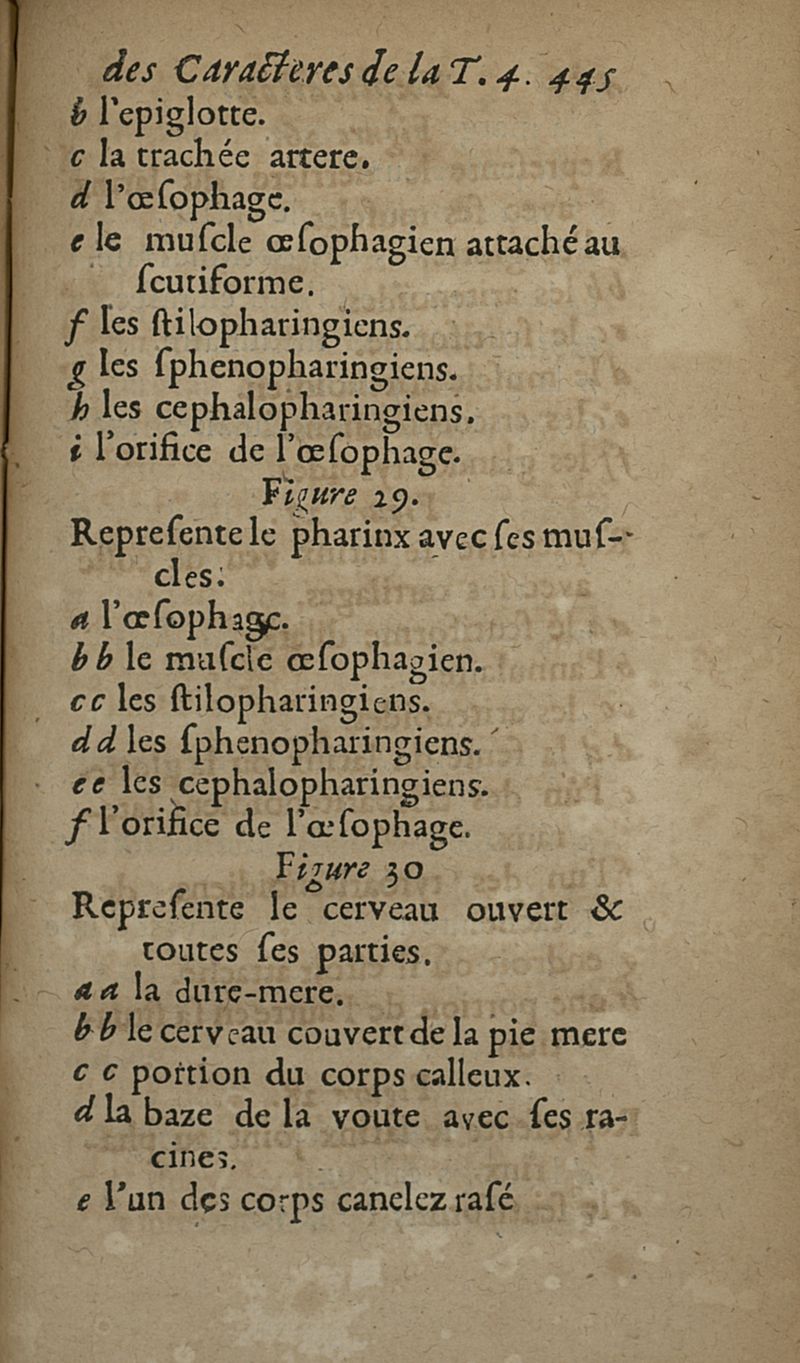 des Caracteres de la T. 4. 445
b l'epiglotte.
c la trachée artere.
d l'œſophage.
e le muſcle œſophagien attaché au
ſcutiforme.
f les ſtilopharingiens.
g les ſphenopharingiens.
h les cephalopharingiens.
i l'orifice de l'œſophage.
Figure 29.
Repreſente le pharinx avec ſes muſ-
cles.
a l'œſophage.
b b le muſcle œſophagien.
c c les ſtilopharingiens.
d d les ſphenopharingiens.
e e les cephalopharingiens.
f l'orifice de l'œſophage.
Figure 30
Repreſente le cerveau ouvert &
toutes ſes parties.
a a la dure-mere.
b b le cerveau couvert de la pie mere
c c portion du corps calleux.
d la baze de la voute avec ſes ra-
cines.
e l'un des corps canelez raſé